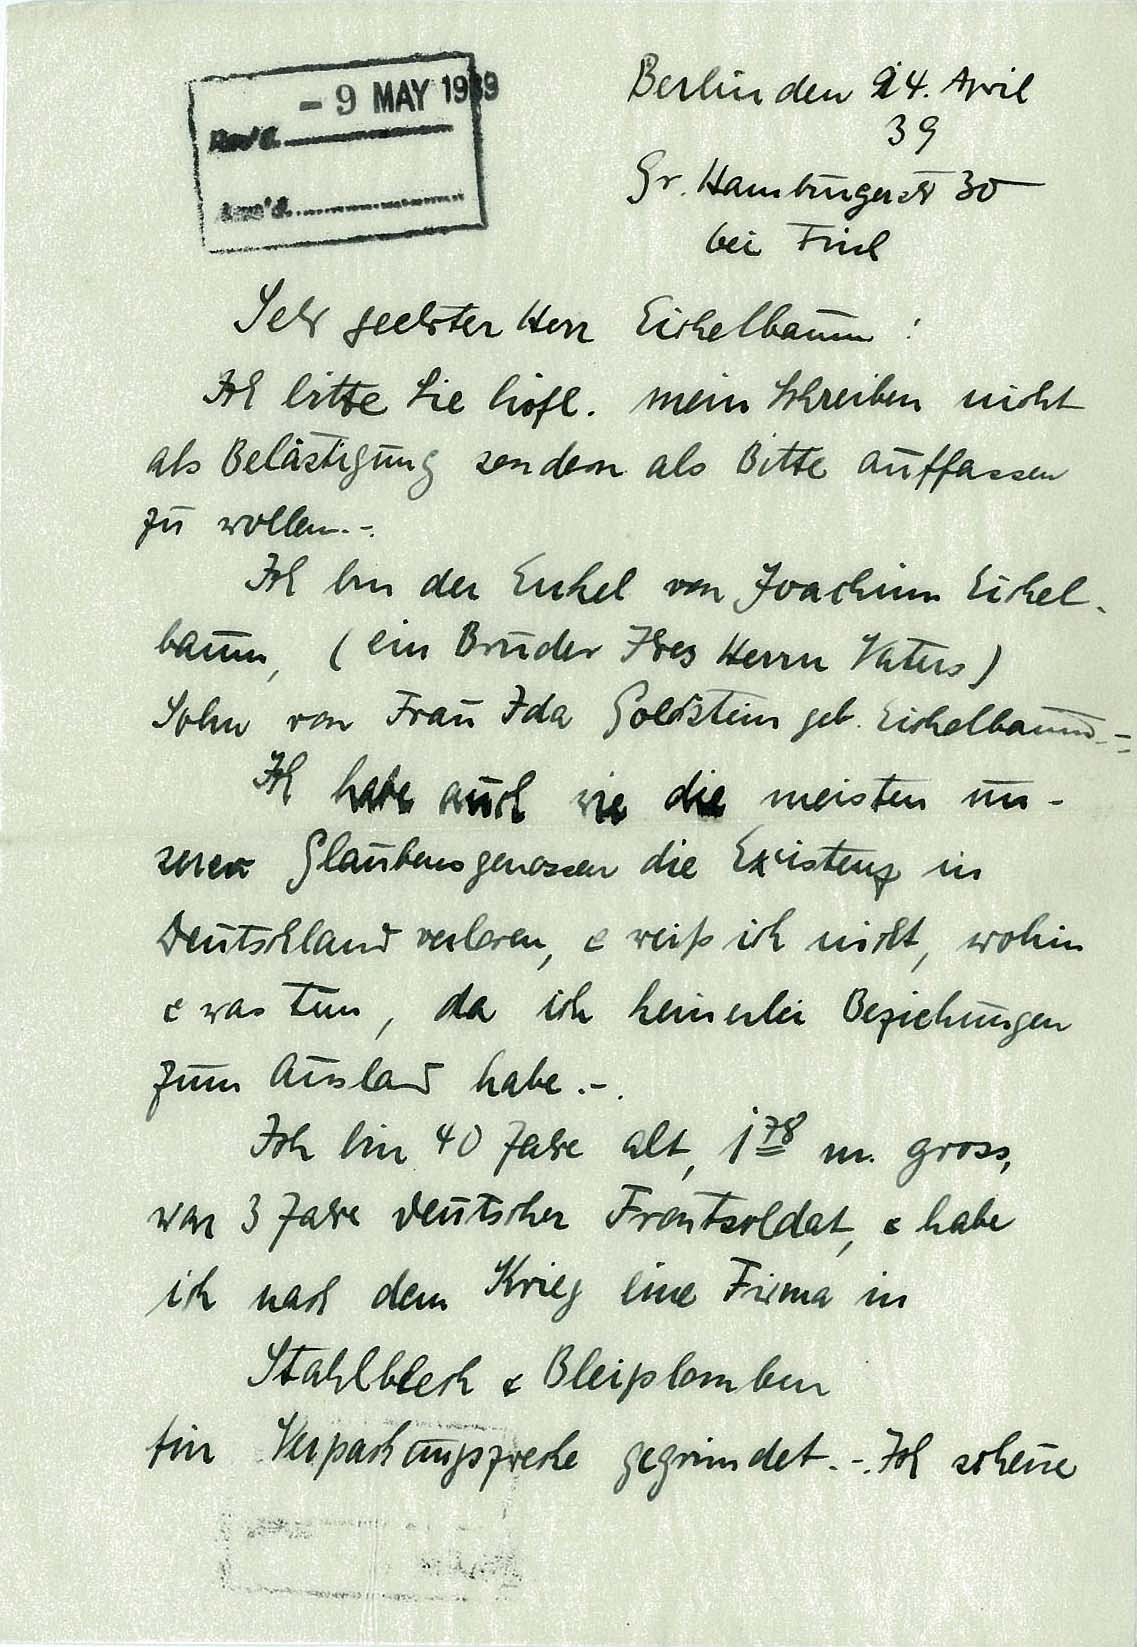 - 9 MAY 1939
Rec'd.
Ans'd.
Berlin den 24. April
39
Gr. Hamburgerstr 30
bei
Sehr geehrter Herr Eichelbaum!
Ich bitte Sie höfl. mein Schreiben nicht
als Belästigung sondern als Bitte auffassen
zu wollen.-.
Ich bin der Enkel von Joachim Eichel-
baum, (ein Bruder Ihres Herrn Vaters)
Sohn von Frau Ida Goldstein geb. Eichelbaum.-
Ich habe auch wie die meisten un-
serer Glaubensgenossen die Existenz in
Deutschland verloren, & weiß ich nicht, wohin
& was tun, da ich keinerlei Beziehungen
zum Ausland habe.-.
Ich bin 40 Jahre alt, 1 78 m. gross,
war 3 Jahre deutscher Frontsoldat, & habe
ich nach dem Krieg eine Firma in
Stahlblech & Bleiplomben
für Verpackungszwecke gegründet.-. Ich scheue